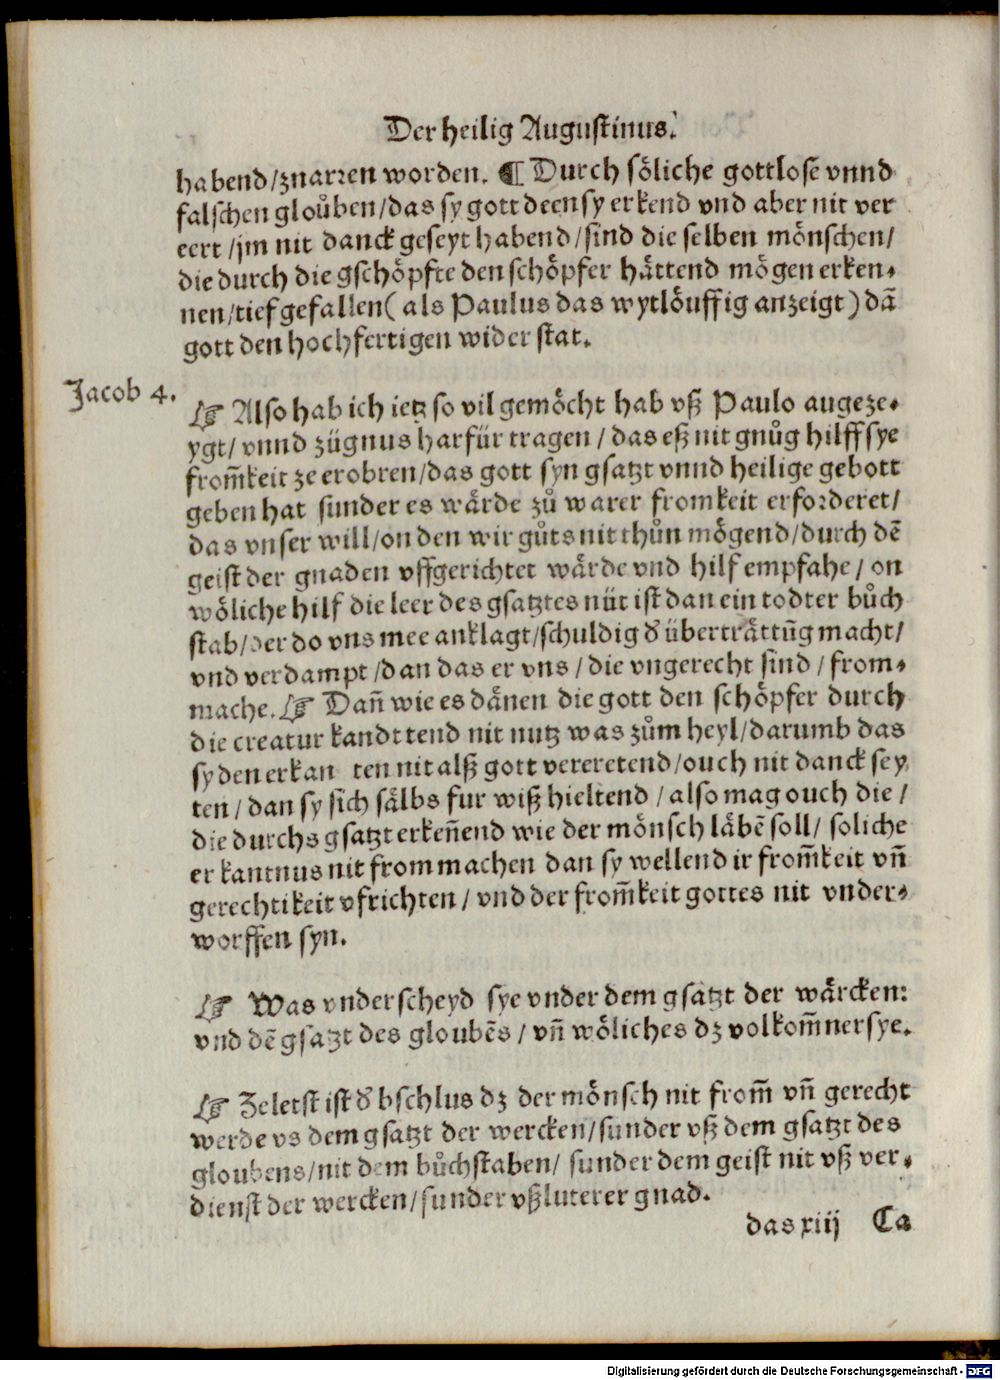 Der heilig Augustinus.
habend/znarren worden. ¶ Durch söliche gottlosē vnnd
falschen gloůben/das sy gott deen sy erkend vnd aber nit ver
eert/jm nit danck geseyt habend/sind die selben mönschen/
die durch die gschöpfte den schöpfer hättend mögen erken-
nen/tief gefallen(als Paulus das wytlöuffig anzeigt)dā
gott den hochfertigen widerstat.
Jacob 4.
☞ Also hab ich ietz so vil gemöcht hab vß Paulo augeze-
ygt/ vnnd zügnus harfür tragen/das eß nit gnůg hilff sye
from̄keit ze erobren/das gott syn gsatzt vnnd heilige gebott
geben hat sunder es wärde zů warer fromkeit erforderet/
das vnser will/on den wir gůts nit thůn mögend/durch dē
geist der gnaden vffgerichtet wärde vnd hilf empfahe/on
wöliche hilf die leer des gsatztes nüt ist dan ein todter bůch
stab/der do vns mee anklagt/schuldig d̓ überträttūg macht/
vnd verdampt/dan das er vns/die vngerecht sind/from-
mache. ☞ Dan̄ wie es dänen die gott den schöpfer durch
die creatur kandt tend nit nutz was zům heyl/darumb das
sy den erkan ten nit alß gott vereretend/ouch nit danck sey
ten/dan sy sich sälbs fur wiß hieltend/also mag ouch die/
die durchs gsatzt erken̄end wie der mönsch läbē soll/ soliche
erkantnus nit from machen dan sy wellend ir from̄keit vn̄
gerechtikeit vfrichten/vnd der from̄keit gottes nit vnder-
worffen syn.
☞ Was vnderscheyd sye vnder dem gsatzt der wärcken:
vnd dē gsatzt des gloubēs/vn̄ wöliches dz volkom̄ner sye.
☞ Zeletst ist d̓ bschlus dz der mönsch nit from̄ vn̄ gerecht
werde vs dem gsatzt der wercken/sunder vß dem gsatzt des
gloubens/nit dem bůchstaben/ sunder dem geist nit vß ver-
dienst der wercken/sunder vß luterer gnad.
das xiij Ca
Digitalisierung gefördert durch die Deutsche Forschungsgemeinschaft - DFG